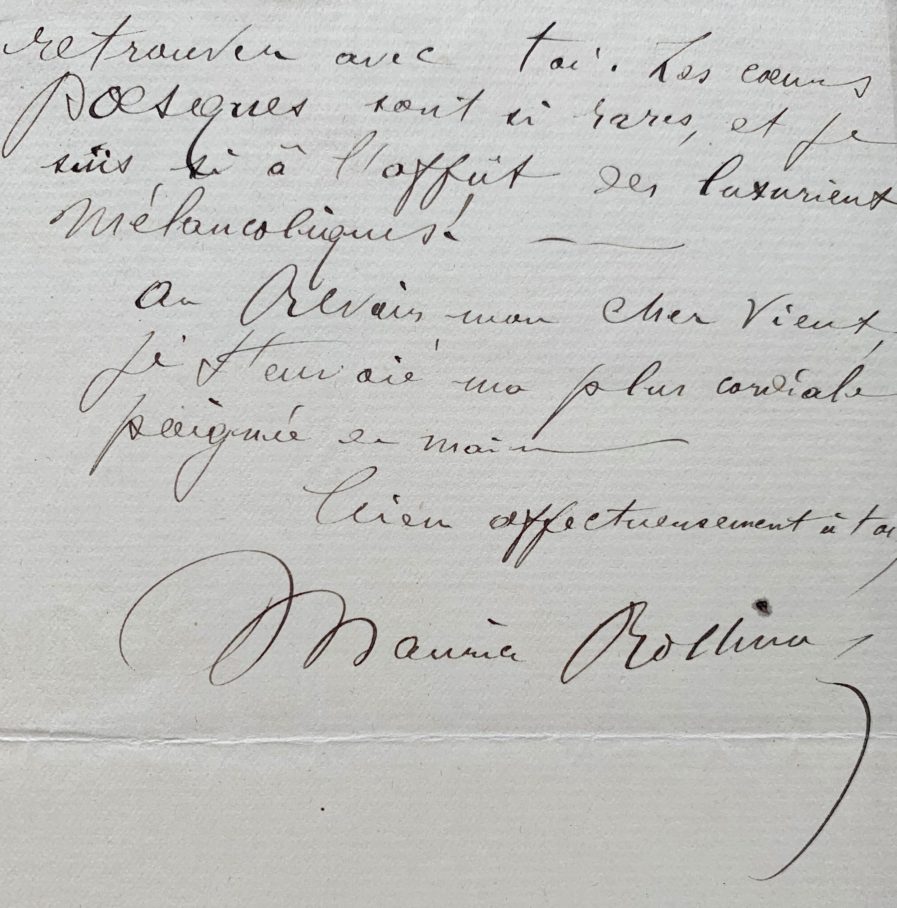 retrouver avec toi. Les cœurs
Pœsques sont si rares, et je
suis si à l'affût des luxurieux
mélancoliques! —
Au Revoir mon cher Vieux,
je t'envoie ma plus cordiale
poignée de main —
bien affectueusement à toi,
Maurice Rollinat